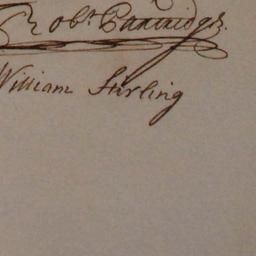 Robt Partridge.
William Stirling